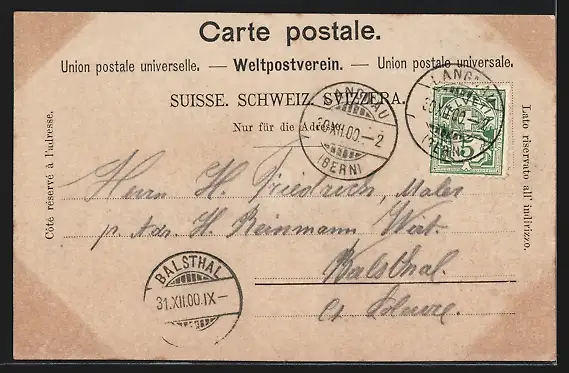 Carte postale.
Union postale universelle. — Weltpostverein. — Union postale universale.
SUISSE. SCHWEIZ. SVIZZERA.
Nur für die Adresse.
Côté réservé à l'adresse.
Lato riservato all' indirizzo.
LANGNAU
30.XII.00.–2
(BERN)
LANGNAU
30.XII.00.–
(BERN)
HELVETIA
5
Herrn H. Friedrich, Maler
p. Adr. H. Reinmann Wirt.
Balsthal.
Ct. Soleure.
BALSTHAL
31.XII.00.IX–